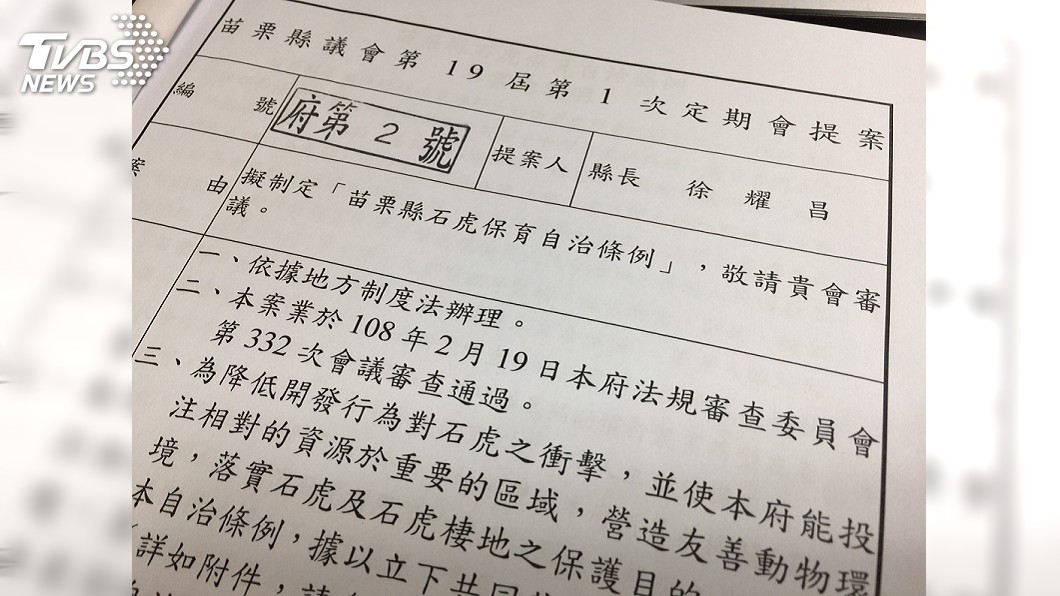 TVBS
NEWS
苗栗縣議會第 19 屆第 1 次定期會提案
編號 府第 2 號 提案人 縣長 徐耀昌
案由 擬制定「苗栗縣石虎保育自治條例」，敬請貴會審
議。
一、依據地方制度法辦理。
二、本案業於 108 年 2 月 19 日本府法規審查委員會
第 332 次會議審查通過。
三、為降低開發行為對石虎之衝擊，並使本府能投
注相對的資源於重要的區域，營造友善動物環
境，落實石虎及石虎棲地之保護目的
本自治條例，據以立下共同
詳如附件，請